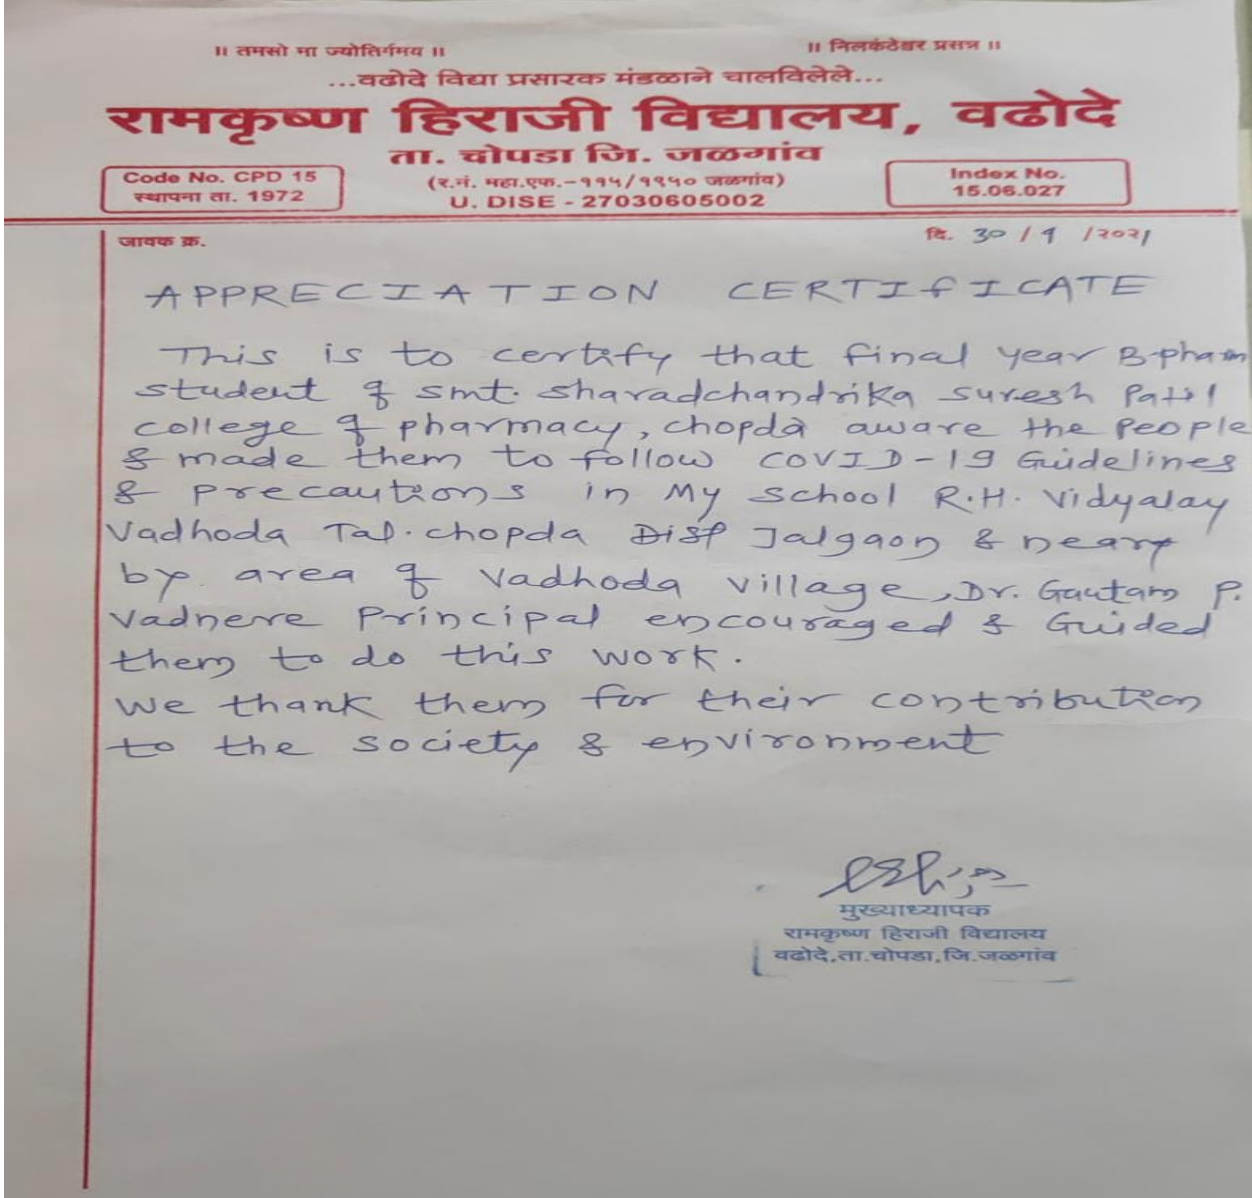 ॥ तमसो मा ज्योतिर्गमय ॥ ॥ निलकंठेश्वर प्रसन्न ॥
...वढोदे विद्या प्रसारक मंडळाने चालविलेले...
रामकृष्ण हिराजी विद्यालय, वढोदे
ता. चोपडा जि. जळगांव
Code No. CPD 15
स्थापना ता. 1972
(र.नं. महा.एफ.-११५/१९५० जळगांव)
U. DISE - 27030605002
Index No.
15.06.027
जावक क्र.
दि. 30 / 9 /२०२१
APPRECIATION CERTIFICATE
This is to certify that final year B-pharm
student of smt. sharadchandrika suresh Patil
college of pharmacy, chopda aware the People
& made them to follow COVID-19 Guidelines
& precautions in My school R.H. Vidyalay
Vadhoda Tal. chopda Dist Jalgaon & neary
by area of Vadhoda village, Dr. Gautam P.
Vadnere Principal encouraged & Guided
them to do this work.
We thank them for their contribution
to the society & environment
मुख्याध्यापक
रामकृष्ण हिराजी विद्यालय
वढोदे,ता.चोपडा,जि.जळगांव